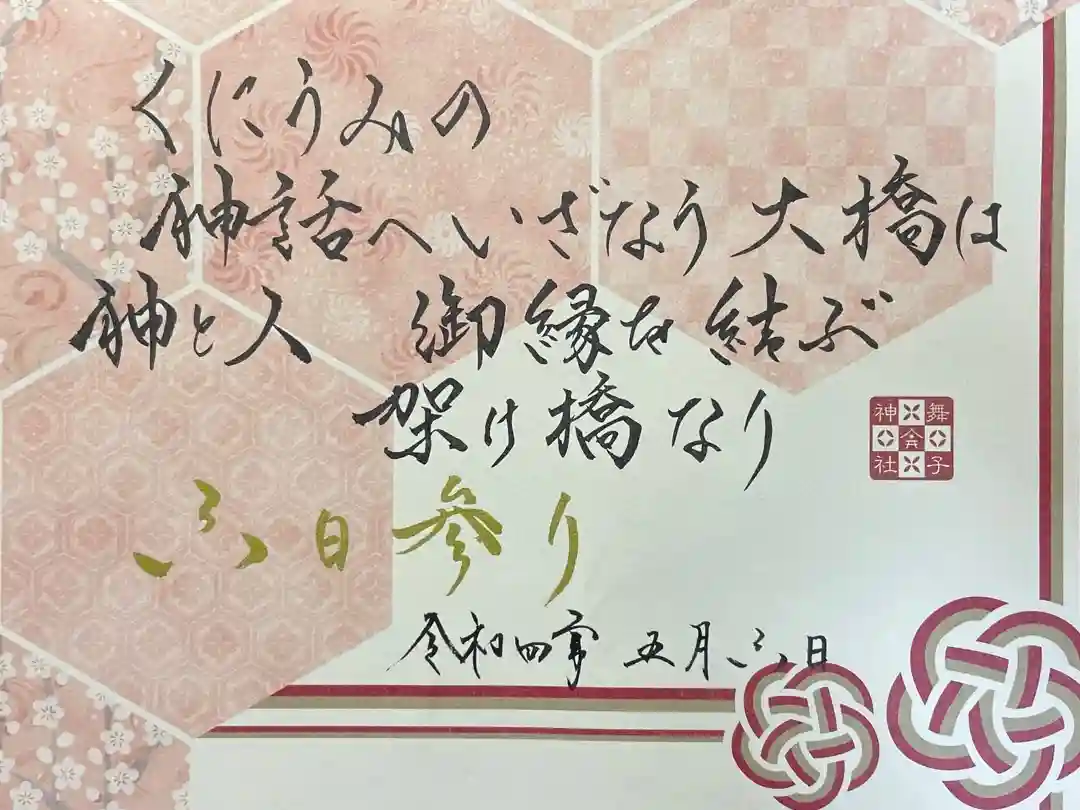 くにうみの
神話へいざなう大橋は
神と人 御縁を結ぶ
架け橋なり
舞子六神社
六日参り
令和四年 五月六日